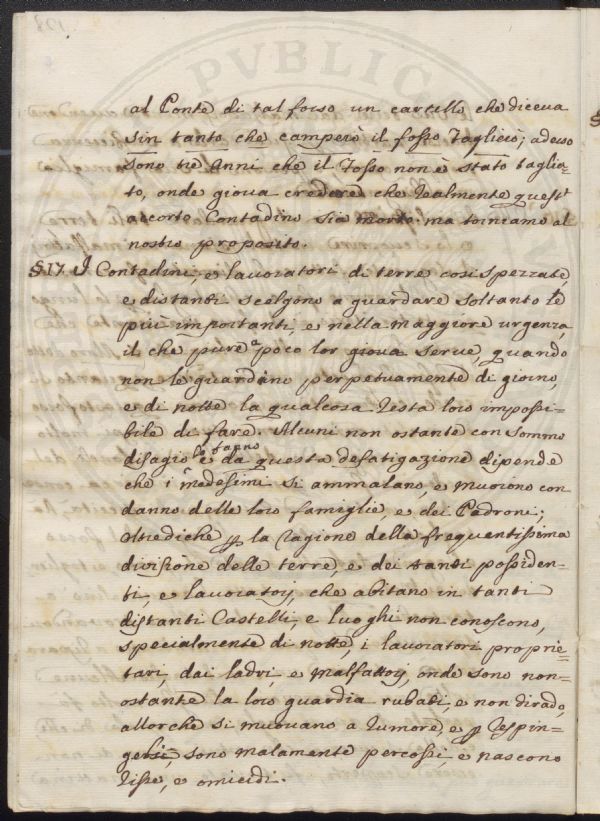 al Conte di tal fosso un cartello che diceva
sin tanto che camperò il fosso taglierò; adesso
sono tre anni che il fosso non è stato taglia=
to, onde giova credere che realmente quest'
accorto Contadino sia morto: ma torniamo al
nostro proposito.
§.17. I Contadini, e lavoratori di terre così spezzate,
e distanti scelgono a guardare soltanto le
più importanti, e nella maggiore urgenza,
il che pure a poco lor giova serve, quando
non le guardino perpetuamente di giorno,
e di notte la qualcosa resta loro impossi=
bile di fare. Alcuni non ostante con sommo
disagio lo fanno e da questa defatigazione dipende
che i medesimi si ammalano, e muoiono con
danno delle loro famiglie, e dei Padroni;
oltrediche p la ragione della frequentissima
divisione delle terre, e dei tanti possiden=
ti, e lavoratorj, che abitano in tanti
distanti Castelli, e luoghi non conoscono,
specialmente di notte, i lavoratori proprie=
tari, dai ladri, e malfattorj, onde sono non=
ostante la loro guardia rubati, e non dirado,
allorche si muovano a rumore, e p respin=
gerli, sono malamente percossi, e nascono
risse, e omicidi.